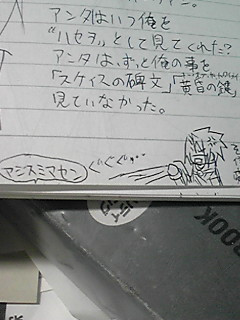 アンタはいつ俺を
"ハセヲ"として見てくれた?
アンタは、ずっと俺の事を
「スケィスの碑文」「黄昏の鍵」
見ていなかった。
マジスミマセン
ぐぐぐ
BOOK